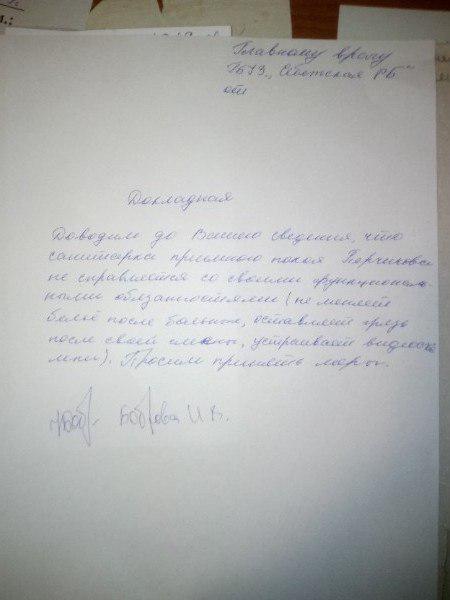 Главному врачу
ГБУЗ "Советская РБ"
от
Докладная
Доводим до Вашего сведения, что
санитарка приёмного покоя
не справляется со своими функциональ-
ными обязанностями (не меняет
бельё после больных, оставляет грязь
после своей смены, устраивает
). Просим принять меры.
Боброва И. В.